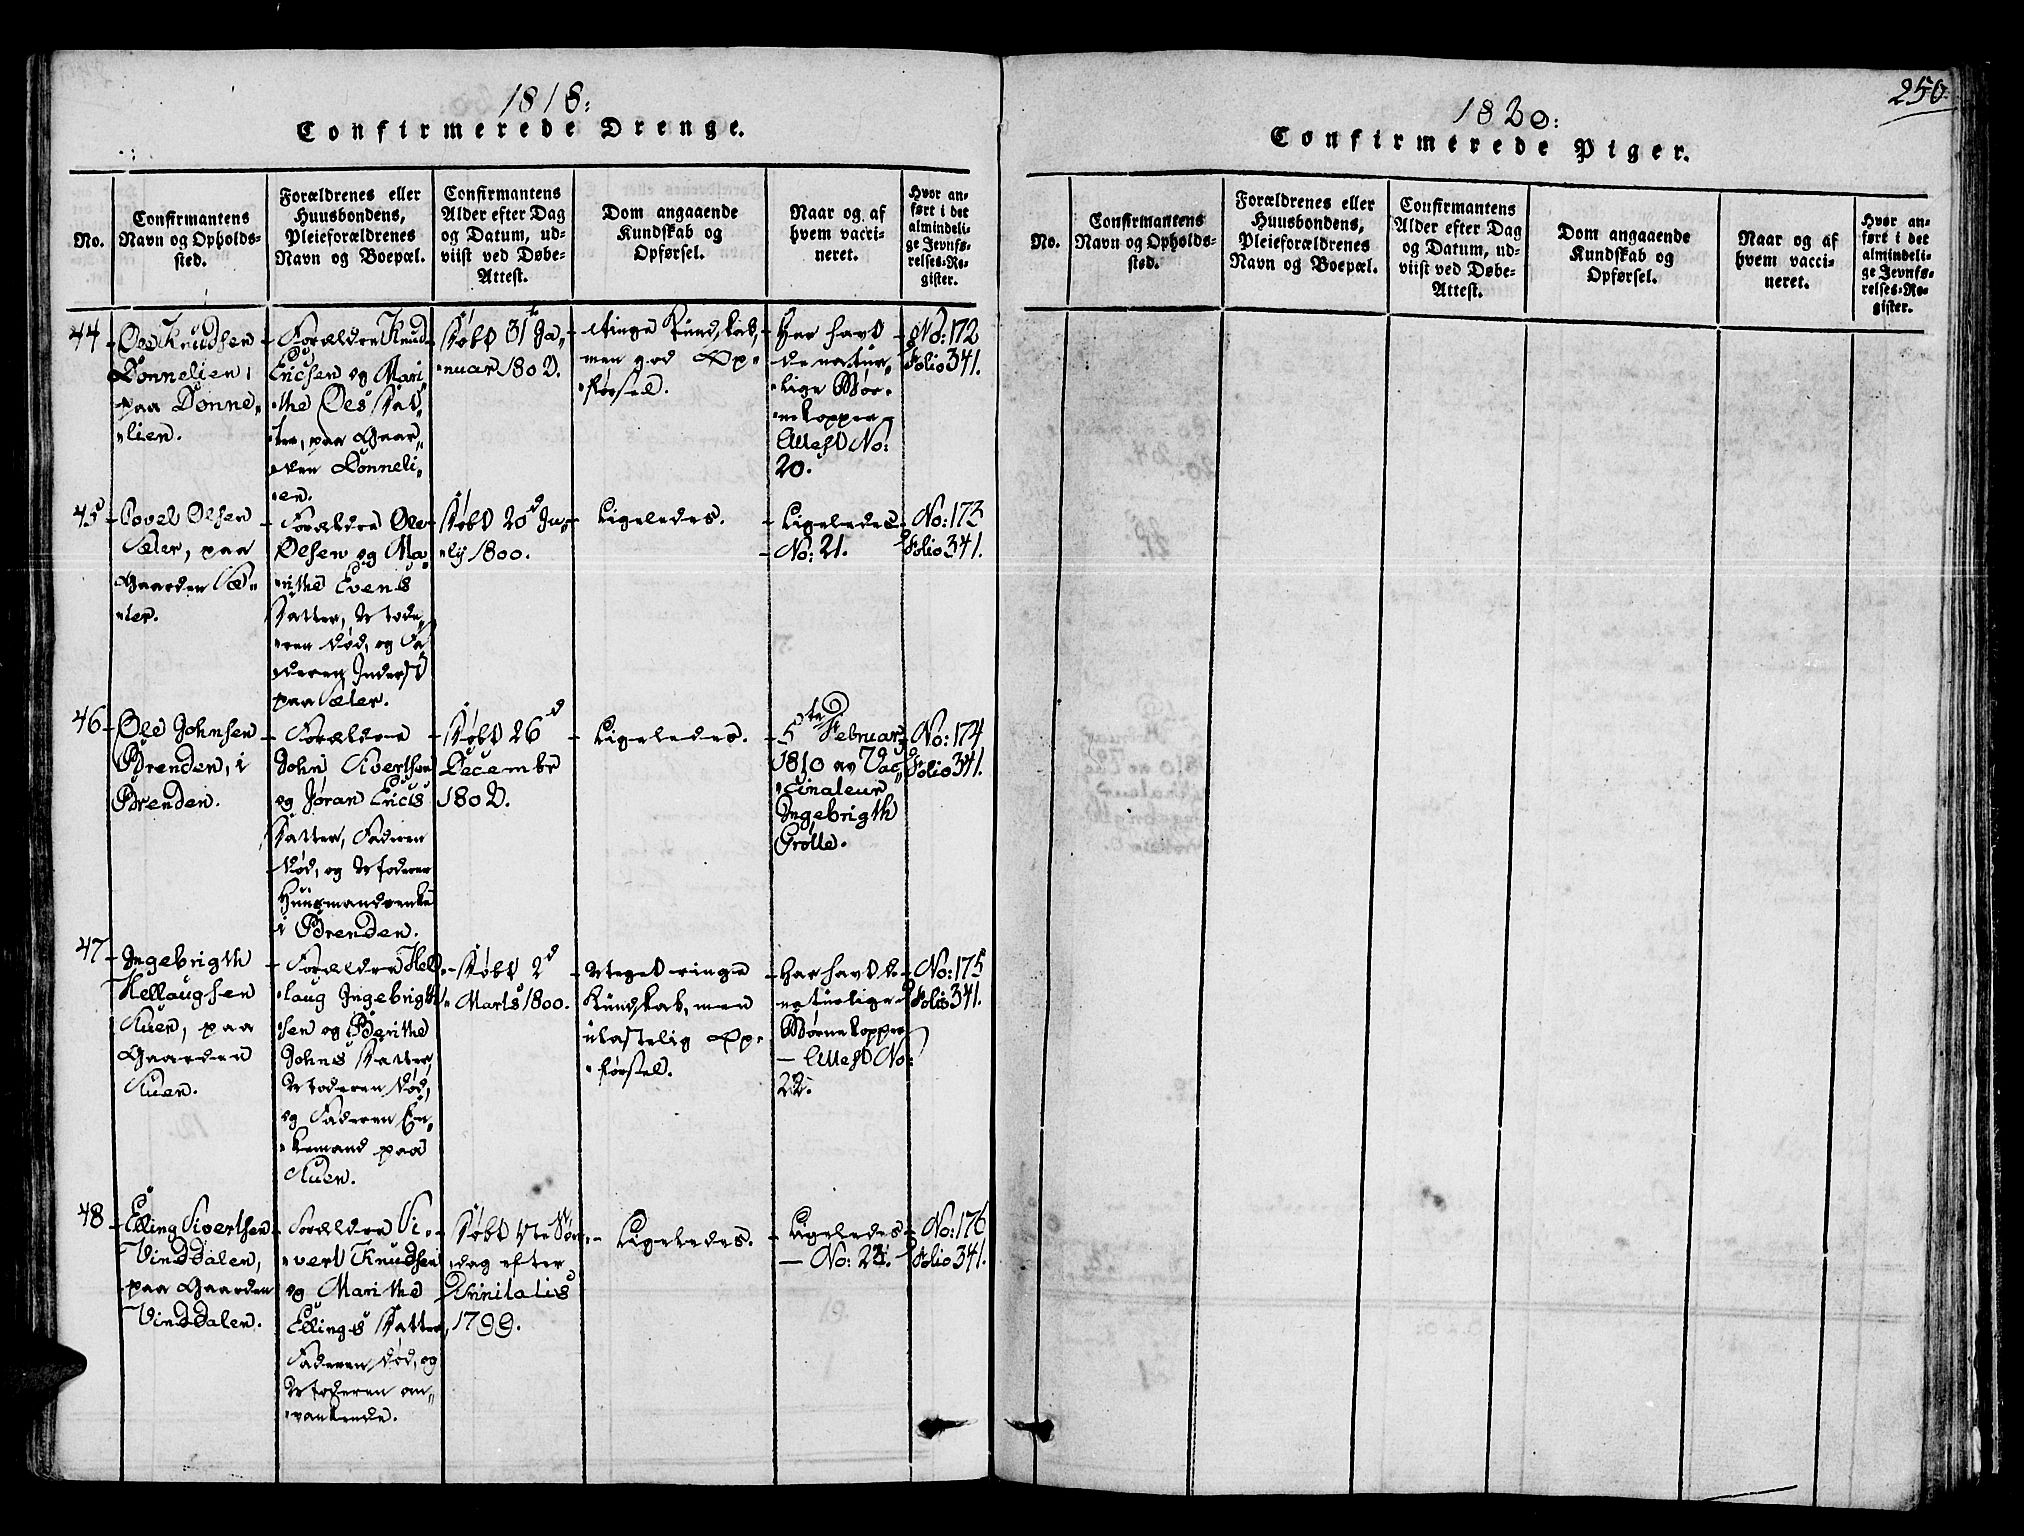 1818:
Confirmerede Drenge.
No.
Confirmantens
Navn og Opholds-
sted.
Forældrenes eller
Huusbondens,
Pleieforældrenes
Navn og Boepæl.
Confirmantens
Alder efter Dag
og Datum, ud-
viist ved Døbe-
Attest.
Dom angaaende
Kundskab og
Opførsel.
Naar og af
hvem vacci-
neret.
Hvor an-
ført i det
almindeli-
ge Jevnfø-
relses-Re-
gister.
44
Ole Knudsen
Dönnelien,
paa Dönne-
lien.
Forældre Knud
Ericsen og Mari-
the Oles Dat-
ter, paa Gaar-
den Dönneli-
en.
Døbt 31te Ja-
nuar 1802.
Ringe Kundskab,
men god Op-
førsel.
Har havt
de natur-
lige Bør-
nekopper
Attest No:
20.
No: 172
Folio 341.
45
Povel Olsen
Sæter, paa
Gaarden Sæ-
ter.
Forældre Ole
Olsen og Ma-
rithe Evens
Datter, Mode-
ren død, og Fa-
deren Inderst
paa Sæter.
Døbt 20d Ju-
lij 1800.
Ligeledes.
Ligeledes
No: 21.
No: 173
Folio 341.
46
Ole Johnsen
Brenden, i
Brenden.
Forældre
John Sivertsen
og Jøran Erics
Datter, Faderen
død, og Moderen
Huusmandsenke
i Brenden.
Døbt 26d
Decembr
1802.
Ligeledes.
5te Februar
1810 av Vac-
cinateur
Ingebrigth
Grölle.
No: 174
Folio 341.
47
Ingebrigth
Hellaugsen
Ruen, paa
Gaarden
Ruen.
Forældre Hel-
laug Ingebrigth-
sen og Berithe
Johns Datter,
Moderen død,
og Faderen En-
kemand paa
Ruen.
Døbt 2d
Marts 1800.
Meget ringe
Kundskab, men
ulastelig Op-
førsel.
Har havt de
naturlige
Børnekopper
— Attest No:
22.
No: 175
Folio 341.
48
Elling Sivertsen
Vinddalen,
paa Gaarden
Vinddalen.
Forældre Si-
vert Knudsen
og Marithe
Ellings Datter,
Faderen død, og
Moderen om-
vankende.
Søn-
dag efter
Trinitatis
1799.
Ligeledes.
Ligeledes
— No: 23.
No: 176
Folio 341.
250.
1820:
Confirmerede Piger.
No.
Confirmantens
Navn og Opholds-
sted.
Forældrenes eller
Huusbondens,
Pleieforældrenes
Navn og Boepæl.
Confirmantens
Alder efter Dag
og Datum, ud-
viist ved Døbe-
Attest.
Dom angaaende
Kundskab og
Opførsel.
Naar og af
hvem vacci-
neret.
Hvor an-
ført i det
almindeli-
ge Jevnfø-
relses-Re-
gister.